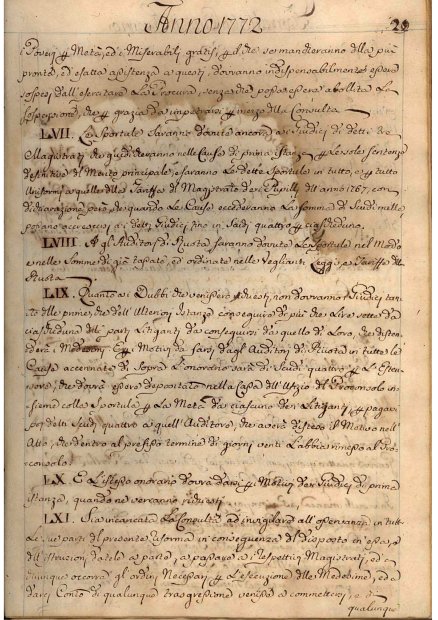 Anno 1772
29
i Poveri p Metà, ed i Miserabili gratis, e p chi se mandteranno alla più
pronta, ed esatta assistenza a questi, dovranno indispensabilmente essere
sospesi dall'esercitare la Procura, senza che possa essere abolita la
sospensione, che p grazia da impetrarsi p mezzo della Consulta
LVII. Le Sportule saranno dovute ancora ai Giudici di detti tre
Magistrati che giudicheranno nelle Cause di prima istanza, p le sole sentenze
definitive di Merito principale, e saranno le dette Sportule in tutto, e p tutto
Uniformi a quelle della Tariffa del Magistrato de Pupilli dell'anno 1767, con
dichiarazione però, che quando le Cause eccederanno la somma di Scudi mille
possano accrescersi ai detti Giudici fino in Scudi quattro p ciascheduno.
LVIII. Agli Auditori di Ruota saranno dovute le Sportule nel Modo
e nelle Somme di già tassate, ed ordinate nelle Veglianti Leggi, e Tariffe della
Ruota
LIX. Quanto ai Dubbi che venissero richiesti, non dovranno i Giudici tan
to delle prime, che dell'Ulteriori Istanze conseguire di più che Lire sette da
ciascheduna delle parti Litiganti da conseguirsi da quello di Loro, che disten
derà i Medesimi. E p i Motivi da farsi dagli Auditori di Ruota in tutte le
Cause accennate di sopra L'onorario sarà di Scudi quattro p L'Esten
sore, che dovrà essere depositato nella Cassa dell'Ufizio del Proconsolo in
sieme colle Sportule p La Metà da ciascuno de Litiganti, e p pagar
si detti Scudi quattro a quell'Auditore, che averà disteso il Motivo nell'
Atto, che dentro al prefisso termine di giorni venti L'abbia rimesso al Pro
consolo.
LX. E L'istesso onorario dovrà darsi p i Motivi de Giudici di prima
istanza, quando ne verranno richiesti.
LXI. Sia incaricata la Consulta ad invigilare all'osservanza in tutte
le sue parti del presente Riforma in conseguenza del disposto in essa e
dell'istruzioni datele a parte, a passare ai Respettivi Magistrati, ed a
chiunque occorra gli ordini Necessari p L'esecuzione delle Medesime, ed a
darci Conto di qualunque trasgressione venisse a commettersi, e di
qualunque